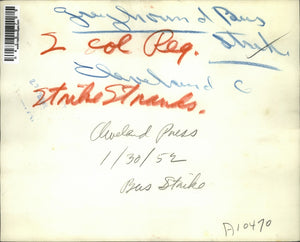 Greyhound Bus
Strike
2 col Reg.
Cleveland C
Strike Strands.
Cleveland Press
1/30/52
Bus Strike
A10470